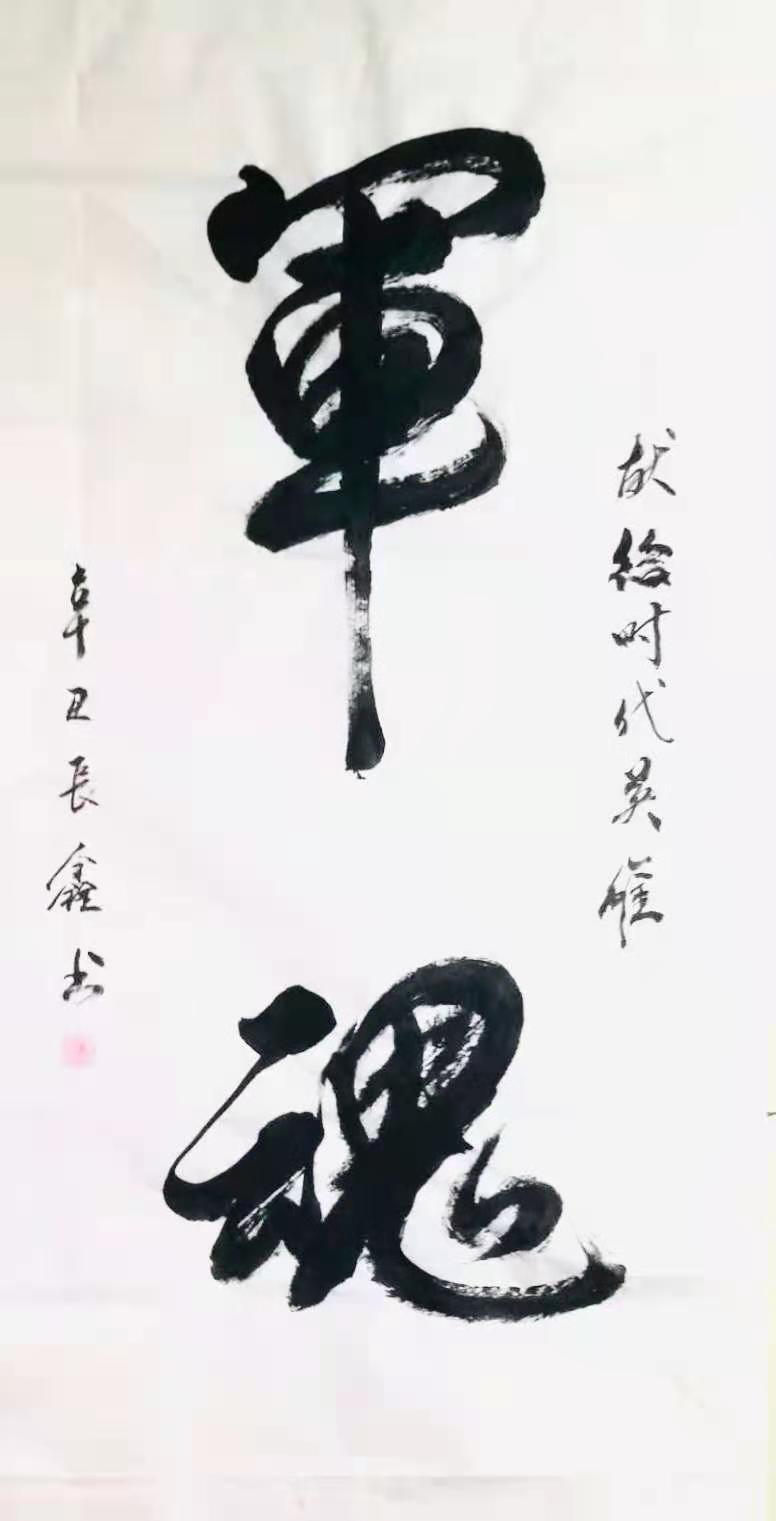 献给时代英雄
軍魂
辛丑長鑫书